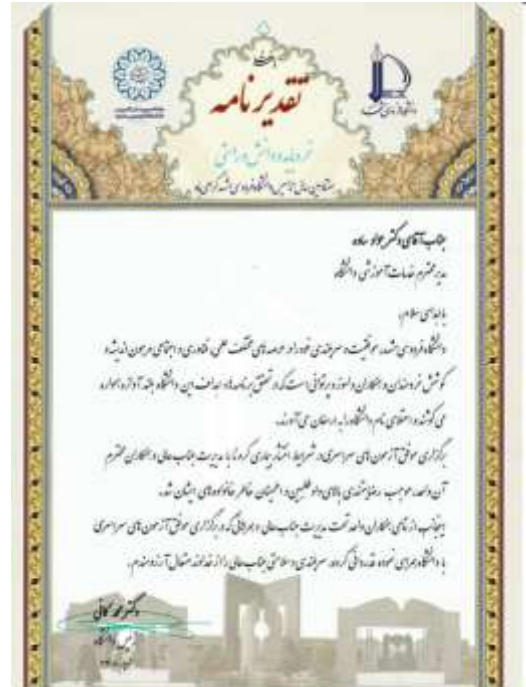 تقدیرنامه
خرد باید و دانش و راستی
هفتادمین سال تاسیس دانشگاه فردوسی مشهد گرامی باد
دانشگاه فردوسی مشهد
جناب آقای دکتر جواد ساده
مدیر محترم خدمات آموزشی دانشگاه
با اهدای سلام،
دانشگاه فردوسی مشهد، موفقیت و سربلندی خود را در عرصه های مختلف علمی، فناوری و اجتماعی مرهون اندیشه و
کوشش خردمندان و همکاران دلسوز و پرتوانی است که در تحقق برنامه ها و اهداف این دانشگاه بلند آوازه همواره
می کوشند و اعتلای نام دانشگاه را به ارمغان می آورند.
برگزاری موفق آزمون های سراسری در شرایط انتشار بیماری کرونا با مدیریت جناب عالی و همکاران محترم
آن واحد، موجب رضایتمندی بالای داوطلبین و اطمینان خاطر خانواده های ایشان شد.
اینجانب از تمامی همکاران واحد تحت مدیریت جناب عالی و همراهانی که در برگزاری موفق آزمون های سراسری
با دانشگاه همراهی نموده قدردانی کرده، سربلندی و سلامتی جناب عالی را از خداوند متعال آرزومندم.
دکتر محمد کافی
رئیس دانشگاه